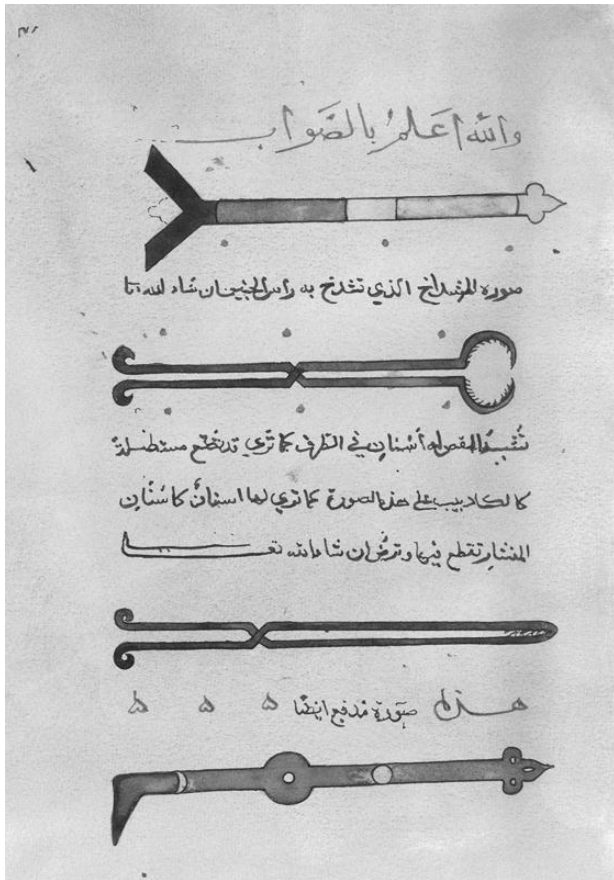 والله اعلم بالصواب
صوره المشداخ الذي تشدخ به راس الجنين ان شاء الله تعا
تشبه المقص له أسنان في الطرف كما تري قد تصنع مستطيلة
كالكلاليب علي هذه الصورة كما تري لها اسنان كاسنان
المنشار تقطع بها وترض ان شاء الله تعـالي
هذه صورة مدفع ايضا ه ه ه